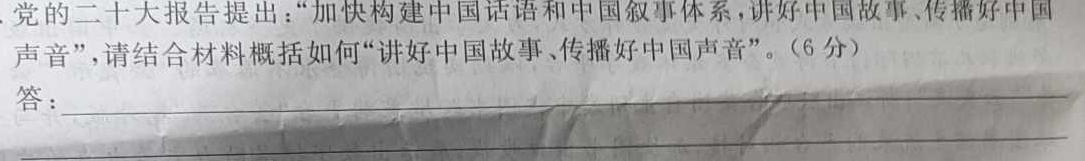 .党的二十大报告提出:“加快构建中国话语和中国叙事体系,讲好中国故事、传播好中国
声音”,请结合材料概括如何“讲好中国故事、传播好中国声音”。(6分)
答: